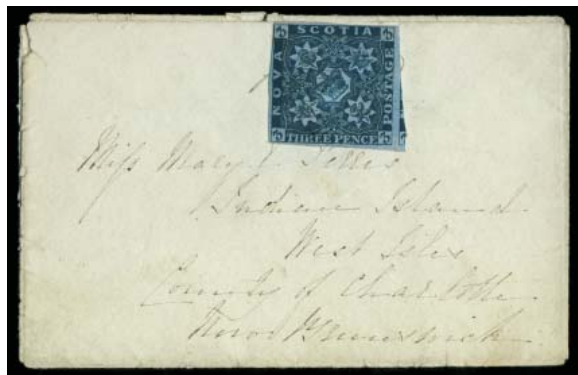 NOVA SCOTIA POSTAGE
THREE PENCE
Miss Mary
Indian Island
West Isles
County of Charlotte
New Brunswick